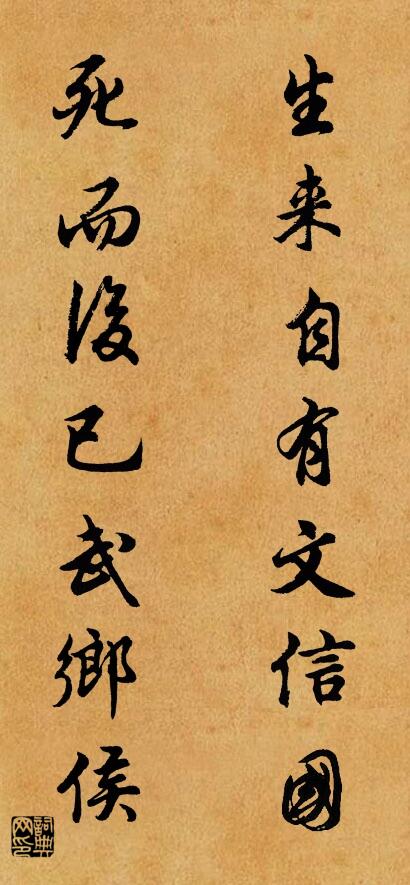 生来自有文信國
死而後已武鄉侯
詞典网印